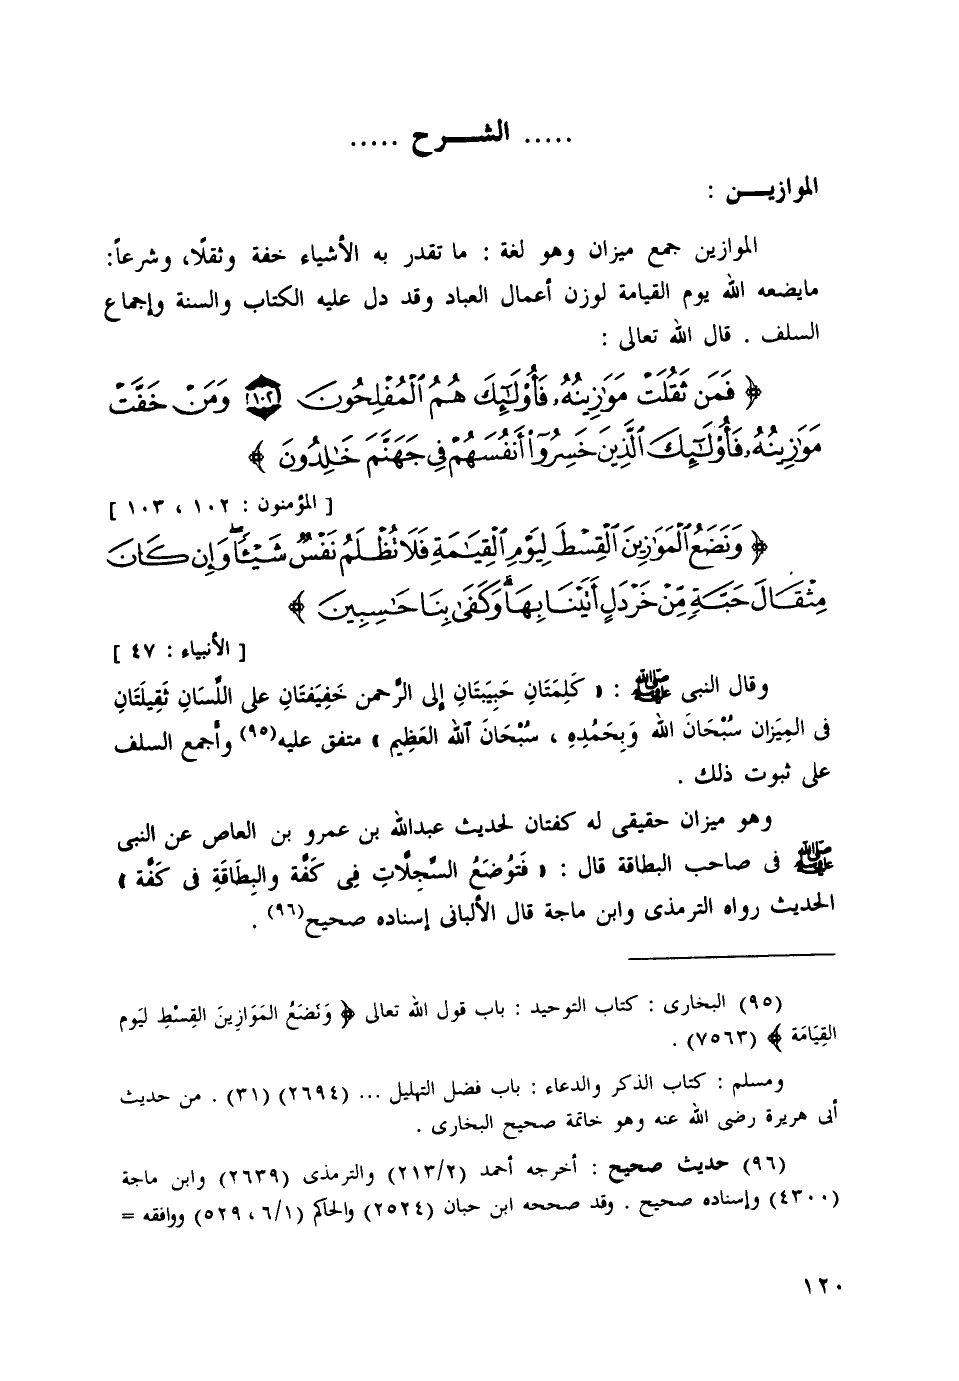 ..... الشـــرح .....
الموازيـــن :
الموازين جمع ميزان وهو لغة : ما تقدر به الأشياء خفة وثقلًا، وشرعاً:
مايضعه الله يوم القيامة لوزن أعمال العباد وقد دل عليه الكتاب والسنة وإجماع
السلف . قال الله تعالى :
﴿ فَمَن ثَقُلَتْ مَوَٰزِينُهُۥ فَأُوْلَٰٓئِكَ هُمُ ٱلْمُفْلِحُونَ ١٠٢ وَمَنْ خَفَّتْ
مَوَٰزِينُهُۥ فَأُوْلَٰٓئِكَ ٱلَّذِينَ خَسِرُوٓاْ أَنفُسَهُمْ فِي جَهَنَّمَ خَٰلِدُونَ ﴾
[ المؤمنون : ١٠٢ ، ١٠٣ ]
﴿ وَنَضَعُ ٱلْمَوَٰزِينَ ٱلْقِسْطَ لِيَوْمِ ٱلْقِيَٰمَةِ فَلَا تُظْلَمُ نَفْسٌ شَيْـًٔا ۖ وَإِن كَانَ
مِثْقَالَ حَبَّةٍ مِّنْ خَرْدَلٍ أَتَيْنَا بِهَا ۗ وَكَفَىٰ بِنَا حَٰسِبِينَ ﴾
[ الأنبياء : ٤٧ ]
وقال النبى ﷺ : « كَلِمَتَانِ حَبِيبَتَانِ إلى الرَّحمن خَفِيفتَانِ على اللَّسَانِ ثَقِيلَتَانِ
فى المِيَزان سُبْحَانَ الله وَبِحَمْدِهِ ، سُبْحَانَ ٱلله العَظِيم » متفق عليه(٩٥) وأجمع السلف
على ثبوت ذلك .
وهو ميزان حقيقى له كفتان لحديث عبدالله بن عمرو بن العاص عن النبى
ﷺ فى صاحب البطاقة قال : « فَتُوضَعُ السَّجِلَّاتِ فِى كَفَّة والبِطَاقَةِ فى كَفَّة »
الحديث رواه الترمذى وابن ماجة قال الألبانى إسناده صحيح(٩٦) .
(٩٥) البخارى : كتاب التوحيد : باب قول الله تعالى ﴿ وَنَضَعُ المَوَازِينَ القِسْطِ ليَوم
القِيَامَة ﴾ (٧٥٦٣) .
ومسلم : كتاب الذكر والدعاء : باب فضل التهليل ... (٢٦٩٤) (٣١) . من حديث
أبى هريرة رضى الله عنه وهو خاتمة صحيح البخارى .
(٩٦) حديث صحيح : أخرجه أحمد (٢١٣/٢) والترمذى (٢٦٣٩) وابن ماجة
(٤٣٠٠) وإسناده صحيح . وقد صححه ابن حبان (٢٥٢٤) والحاكم (٦/١ ، ٥٢٩) ووافقه =
١٢٠